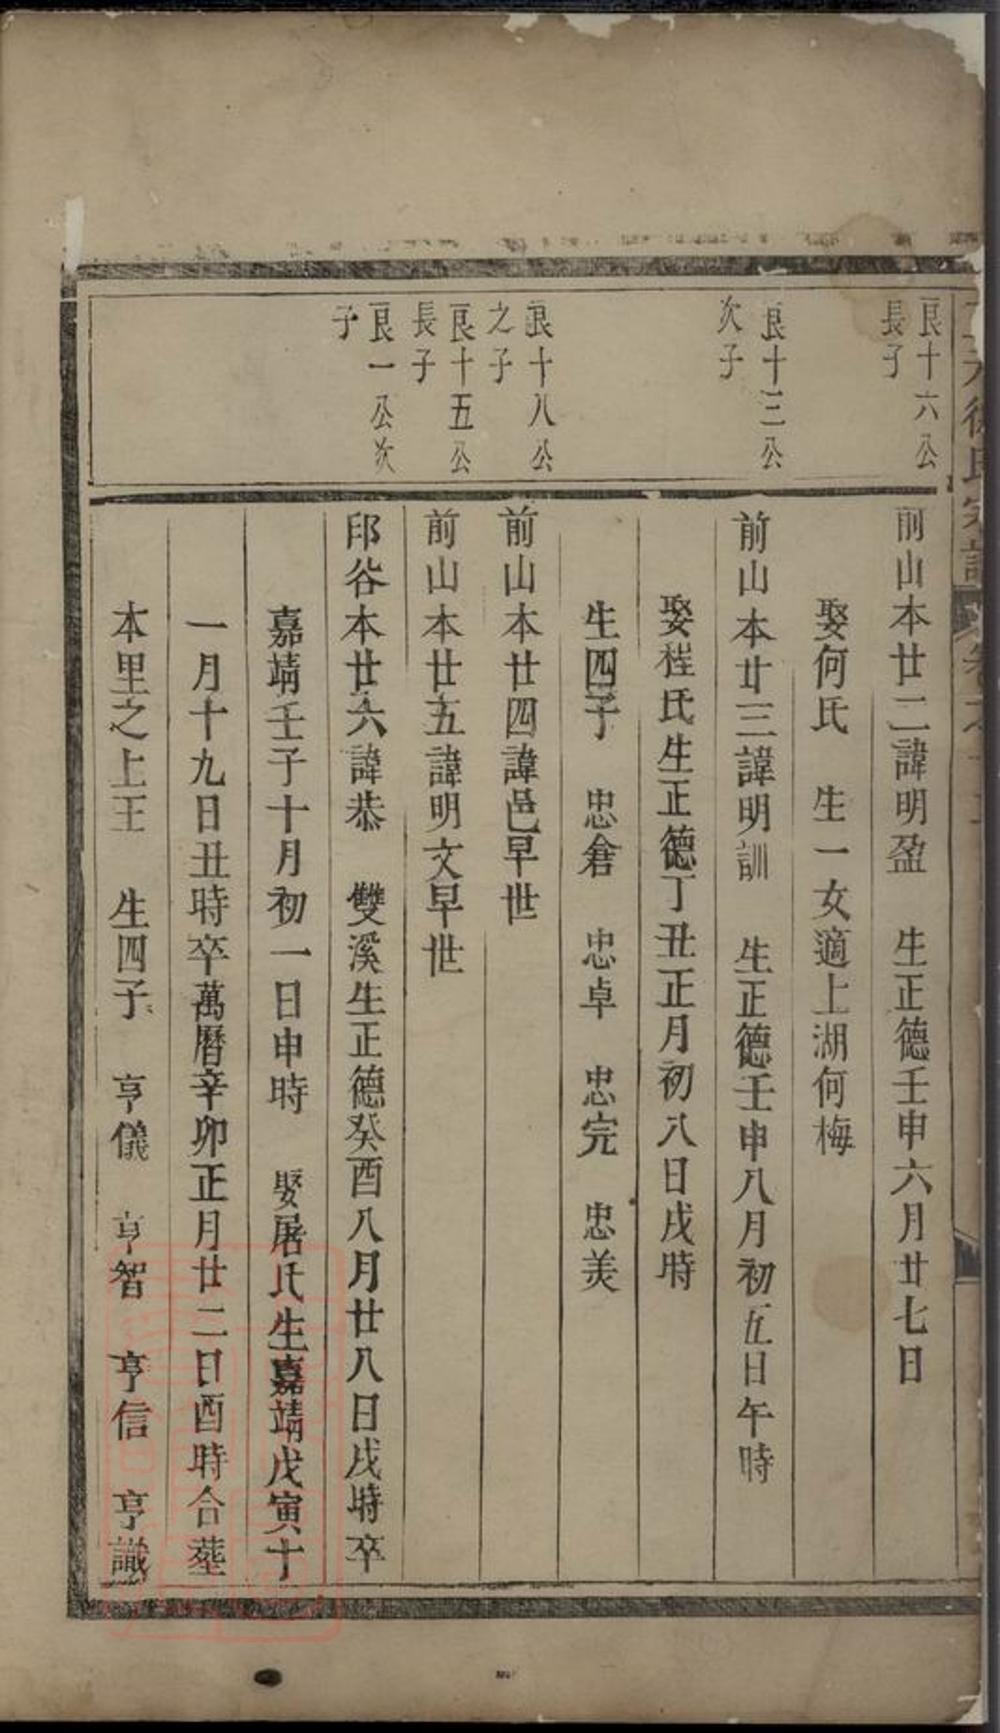 徐氏宗譜
艮十六公
長子
前山本廿二諱明盈 生正德壬申六月廿七日
娶何氏 生一女適上湖何梅
艮十三公
次子
前山本廿三諱明訓 生正德壬申八月初五日午時
娶程氏生正德丁丑正月初八日戌時
生四子 忠倉 忠卓 忠完 忠美
艮十八公
之子
前山本廿四諱邑早世
艮十五公
長子
前山本廿五諱明文早世
艮一公次
子
印谷本廿六諱恭 雙溪生正德癸酉八月廿八日戌時卒
嘉靖壬子十月初一日申時 娶屠氏生嘉靖戊寅十
一月十九日丑時卒萬曆辛卯正月廿二日酉時合葬
本里之上王 生四子 亨儀 亨智 亨信 亨識